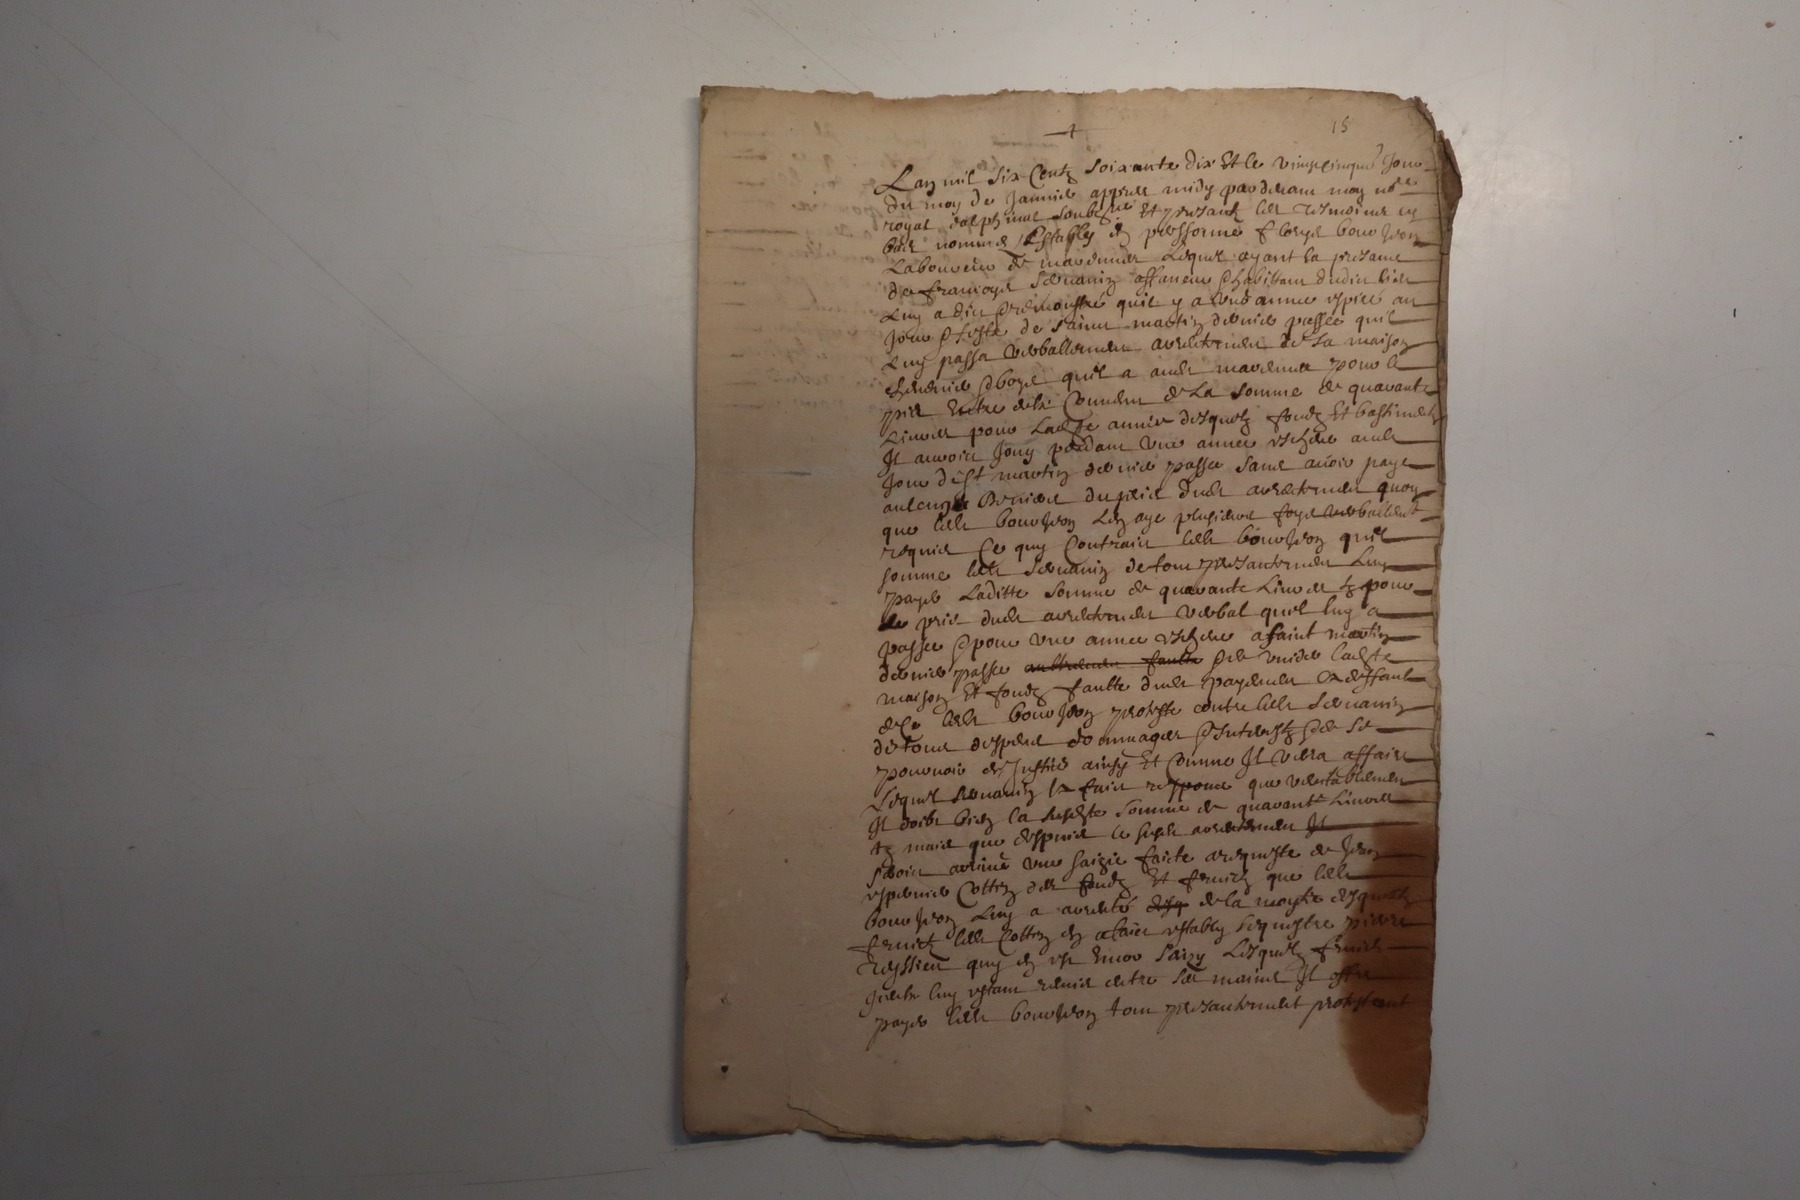 15
Lan mil six Centz soixante dix Et le vingtcinqe Jour
du moys de Janvier appres midy par devant moy nore
royal dalphinal soubzne Et presantz les tesmoins en
bas nommes Estably en perssonne bourJon
Laboureur de lequel ayant la presance
de francoys Servanin affaneur & habittant dudict lieu
Luy a dict & remonstré quil y a heu années expiré au
Jour & feste de saint martin dernier passée quil
Luy passa verballement arrentement de sa maison
quil a audit pour le
pris Entre eulx Convenu de La somme de quarante
Livres pour Ladte année desquelz fondz Et bastimentz
Il auroict Jouy pendant une année escheue audt
Jour de st martin dernier passé sans avoir payé
aulcung deniers du pris dudt arrentement quoy
que ledt bourJon Len aye plusieurs foys verballemt
requis Ce quy Contraict ledt bourJon quil
somme ledt Servanin de tout presantement Luy
payer Laditte somme de quarante Livres tz pour
le pris dudt arrentement verbal quil luy a
passé & pour une année escheue a saint martin
dernier passé aultrement faulte & de vuider ladte
maison Et fondz faulte dudt payement a deffault
de Ce ledt bourJon proteste contre ledt Servanin
de tous despens dommages & Interestz & de se
pourvoir en Justice ainsy Et Comme Il verra affaire
Lequel Servanin a faict responce que veritablement
Il doibt bien la susdte somme de quarante Livres
tz mais que despuis le susdt arrentement Il
seroit arrivé une saizie faicte a requeste de Jean
Cottin des fondz Et fruictz que ledt
bourJon Luy a arrenté de la moytié desquelz
fruictz ledt Cottin en a faict establir sequestre pierre
Teyssieu quy en est Encor saizy Lesquelz fruictz
luy estant remis entre ses mains Il offre
payer ledt bourJon tout presantement protestant